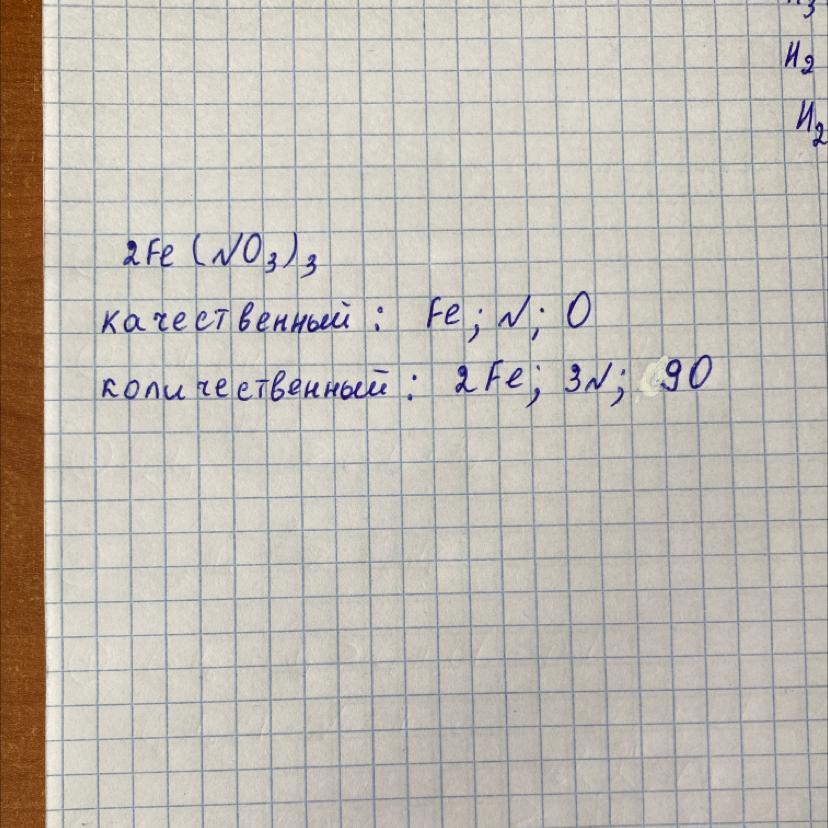 H₂
H₂
2Fe(NO₃)₃
качественный: Fe; N; O
количественный: 2Fe; 3N; 9O